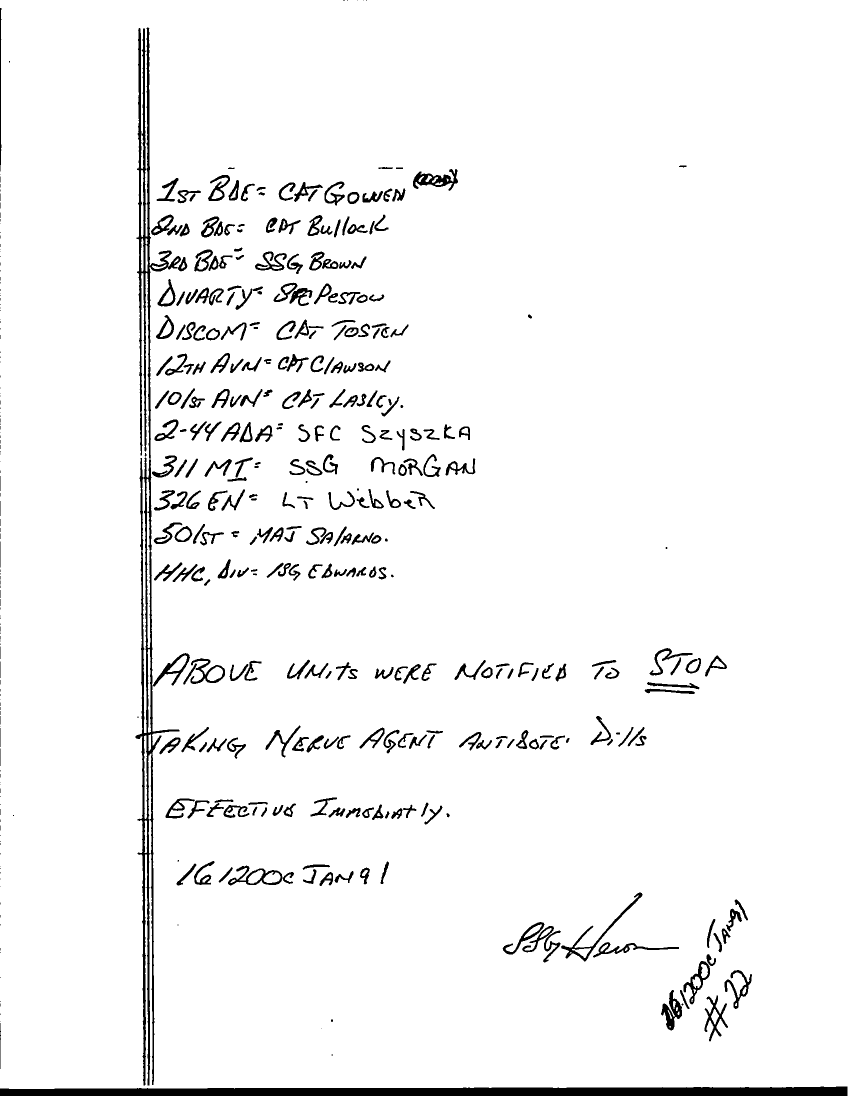 1ST BDE = CPT GOWEN
2ND BDE = CPT Bullock
3RD BDE = SSG BROWN
DIVARTY = SFC PESTOW
DISCOM = CPT TOSTEN
12TH AVN = CPT CLAWSON
101ST AVN = CPT LASLEY.
2-44 ADA = SFC SZYSZKA
311 MI = SSG MORGAN
326 EN = LT WebbeR
501ST = MAJ SALARNO.
HHC, DIV = 1SG EDWARDS.
ABOVE UNITS WERE NOTIFIED TO STOP
TAKING NERVE AGENT ANTIDOTE. Pills
EFFECTIVE IMMEDIATLY.
161200C JAN 91
SSG Heron
161200C JAN 91
#22